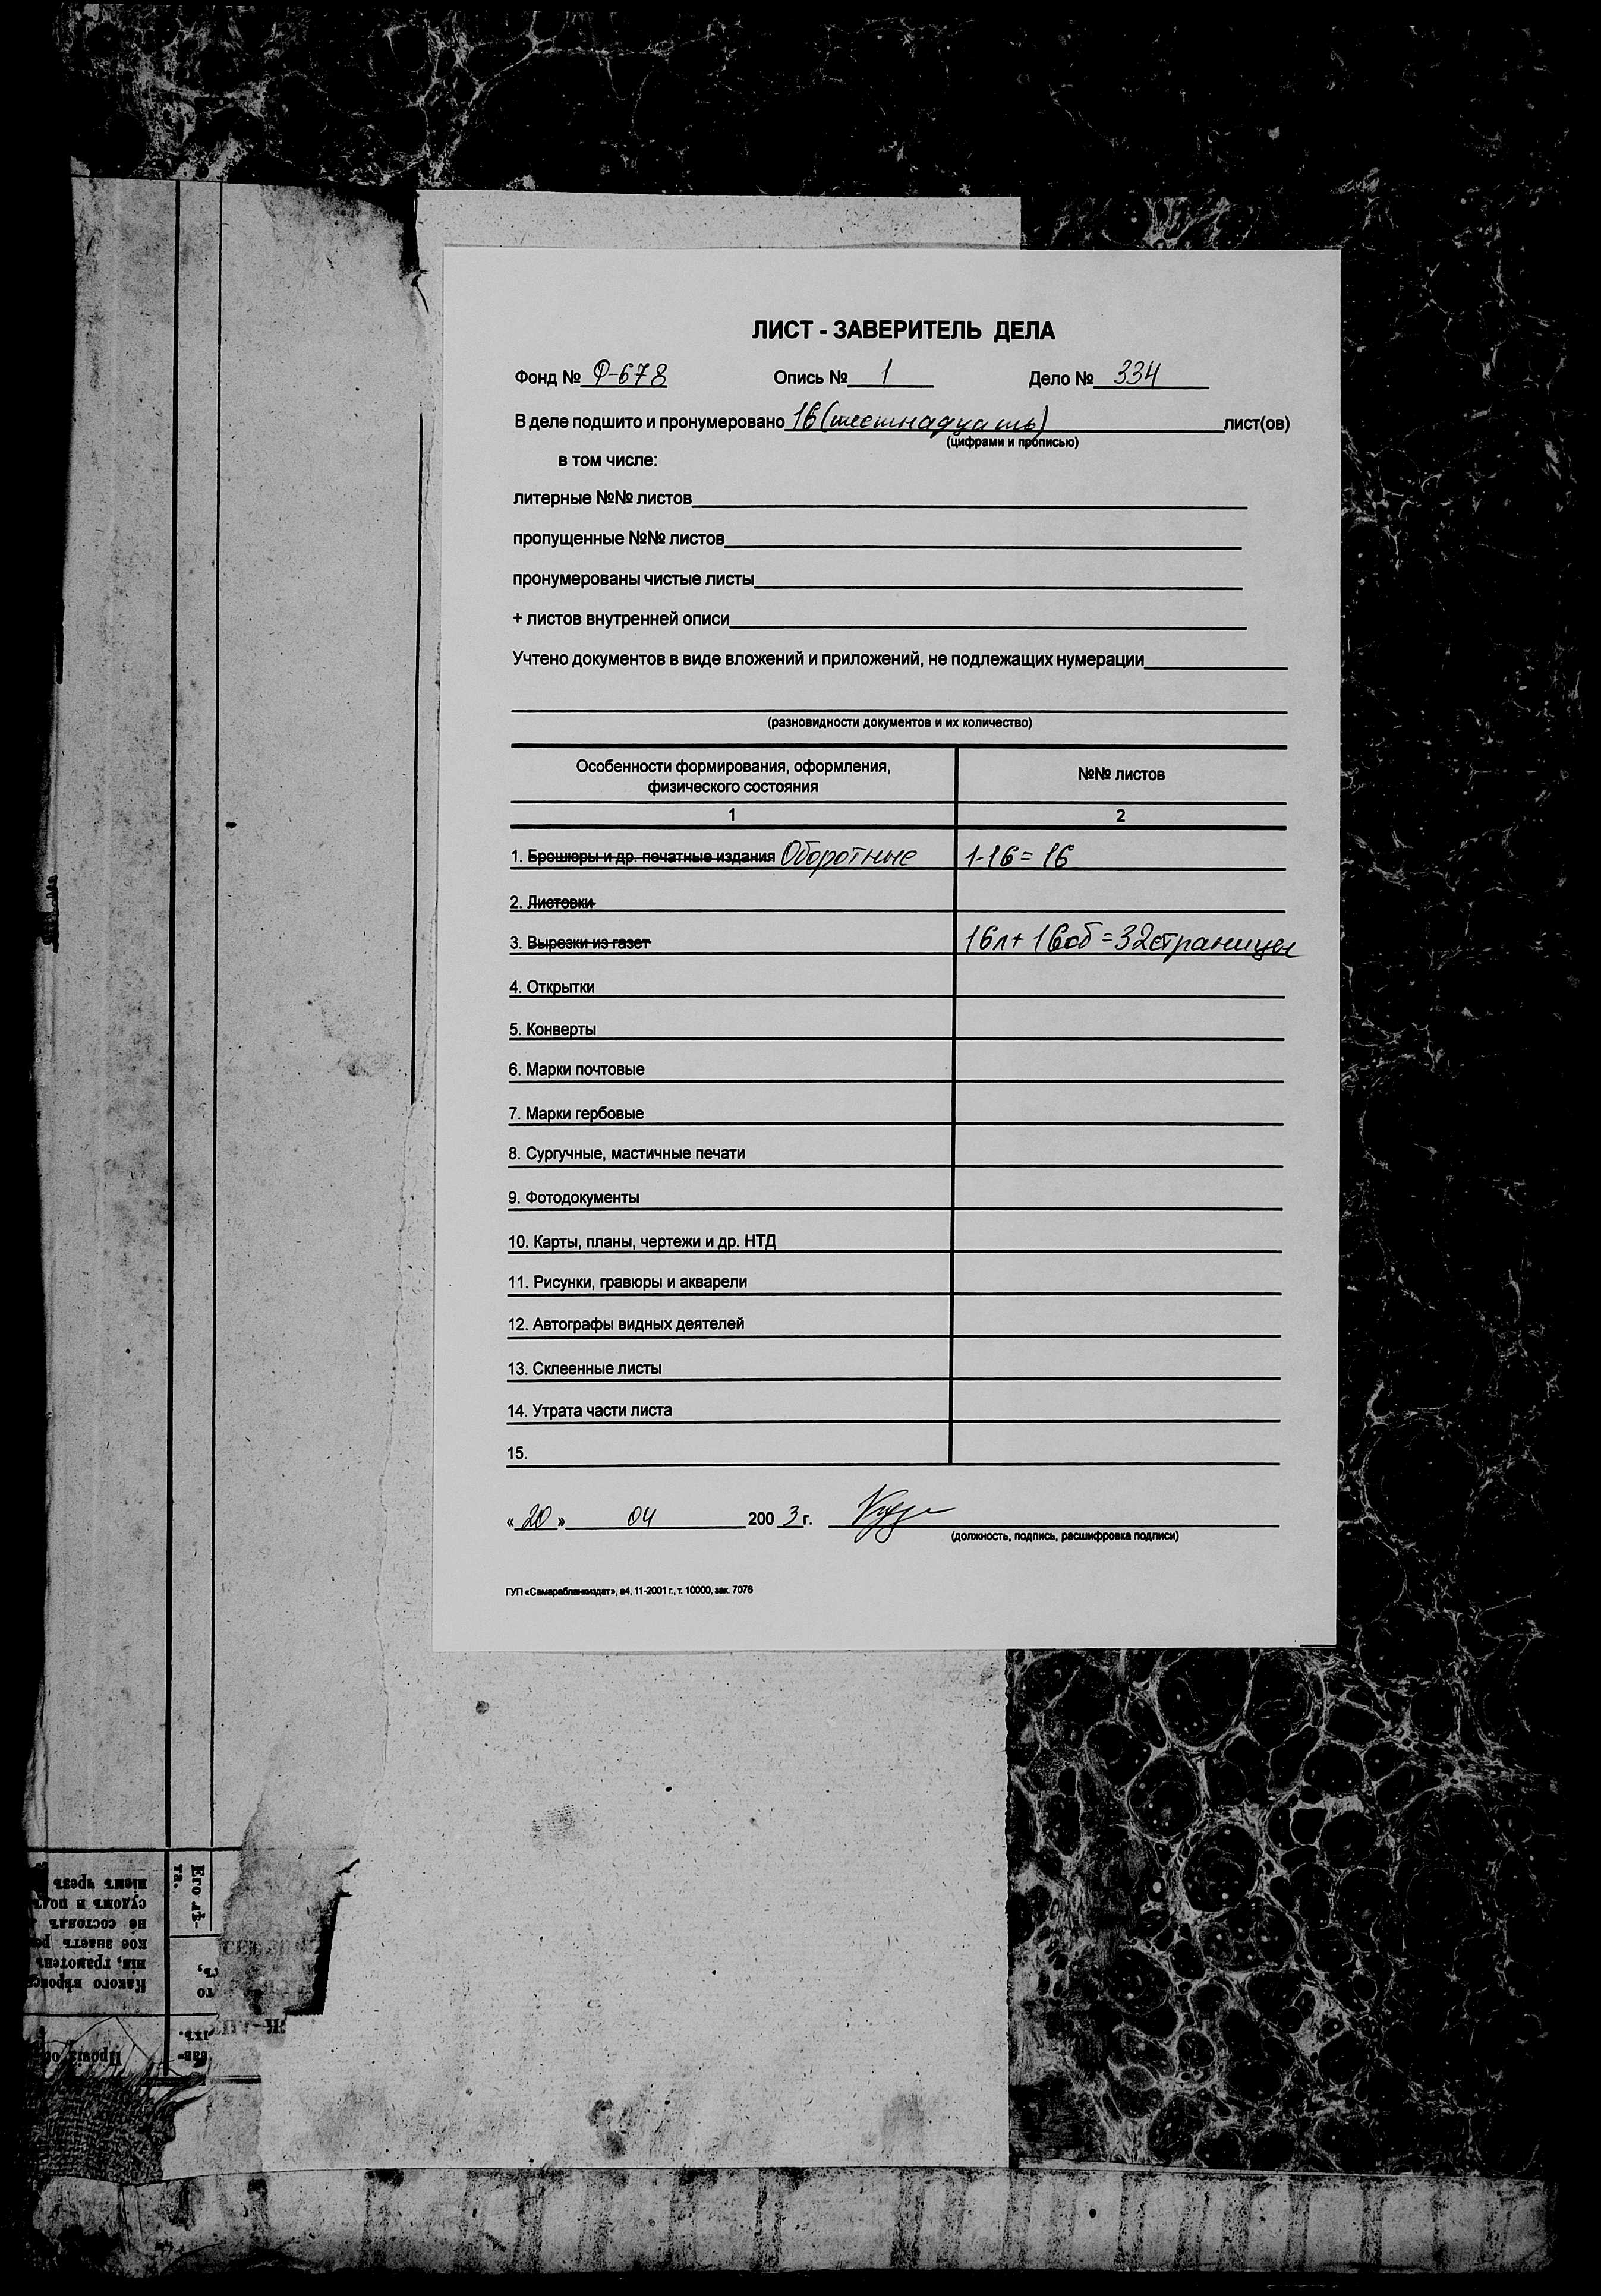 ЛИСТ - ЗАВЕРИТЕЛЬ ДЕЛА
Фонд № Ф-678 Опись № 1 Дело № 334
В деле подшито и пронумеровано 16 (шестнадцать) лист(ов)
(цифрами и прописью)
в том числе:
литерные №№ листов
пропущенные №№ листов
пронумерованы чистые листы
+ листов внутренней описи
Учтено документов в виде вложений и приложений, не подлежащих нумерации
(разновидности документов и их количество)
Особенности формирования, оформления,
физического состояния
№№ листов
1 2
1. Брошюры и др. печатные издания Оборотные 1-16 = 16
2. Листовки
3. Вырезки из газет 16л + 16об = 32 страницы
4. Открытки
5. Конверты
6. Марки почтовые
7. Марки гербовые
8. Сургучные, мастичные печати
9. Фотодокументы
10. Карты, планы, чертежи и др. НТД
11. Рисунки, гравюры и акварели
12. Автографы видных деятелей
13. Склеенные листы
14. Утрата части листа
15.
« 20 » 04 200 3 г.
(должность, подпись, расшифровка подписи)
ГУП «Самарабланкиздат», а4, 11-2001 г., т. 10000, зак. 7076
Какого вѣроис
нія, грамотенъ
кое знаетъ ре
не состоялъ
судомъ и под
шемъ чрезъ
Его лѣ-
та.